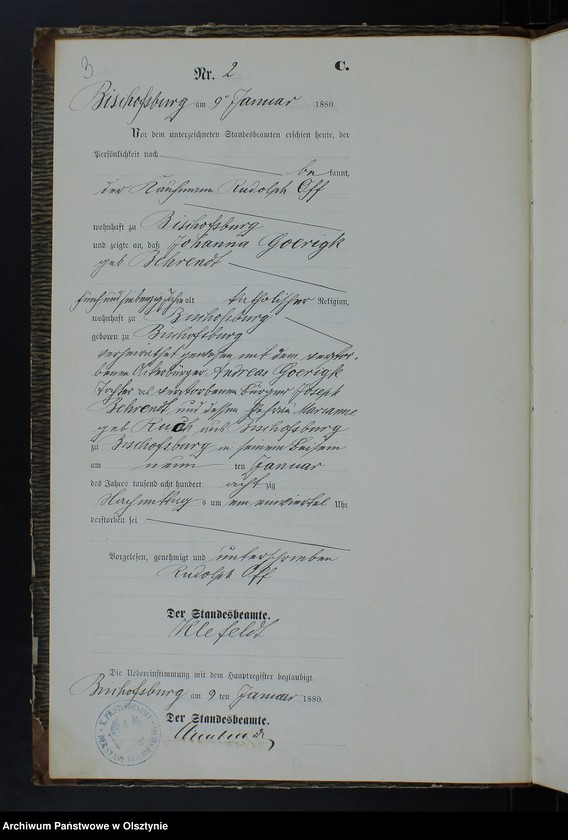 3
Nr. 2 C.
Bischofsburg am 9ᵗ Januar 1880.
Vor dem unterzeichneten Standesbeamten erschien heute, der
Persönlichkeit nach
be kannt,
der Kaufmann Rudolph Off
wohnhaft zu Bischofsburg
und zeigte an, daß Johanna Goerigk
geb Behrendt
fünfundsiebenzig Jahr alt katholischer Religion,
wohnhaft zu Bischofsburg
geboren zu Bischofsburg
verheirathet gewesen mit dem verstor-
benen Ackerbürger Andreas Goerigk
Tochter des verstorbenen Bürger Joseph
Behrendt und dessen Ehefrau Marianne
geb Ruch aus Bischofsburg
zu Bischofsburg in seinem Beisein
am neun ten Januar
des Jahres tausend acht hundert acht zig
Nachmittag s um ein einviertel Uhr
verstorben sei
Vorgelesen, genehmigt und unterschrieben
Rudolph Off
Der Standesbeamte.
Klefeldt
Die Uebereinstimmung mit dem Hauptregister beglaubigt.
Bischofsburg am 9 ten Januar 1880.
Der Standesbeamte.
K. PR. STANDESAMT
Archiwum Państwowe w Olsztynie